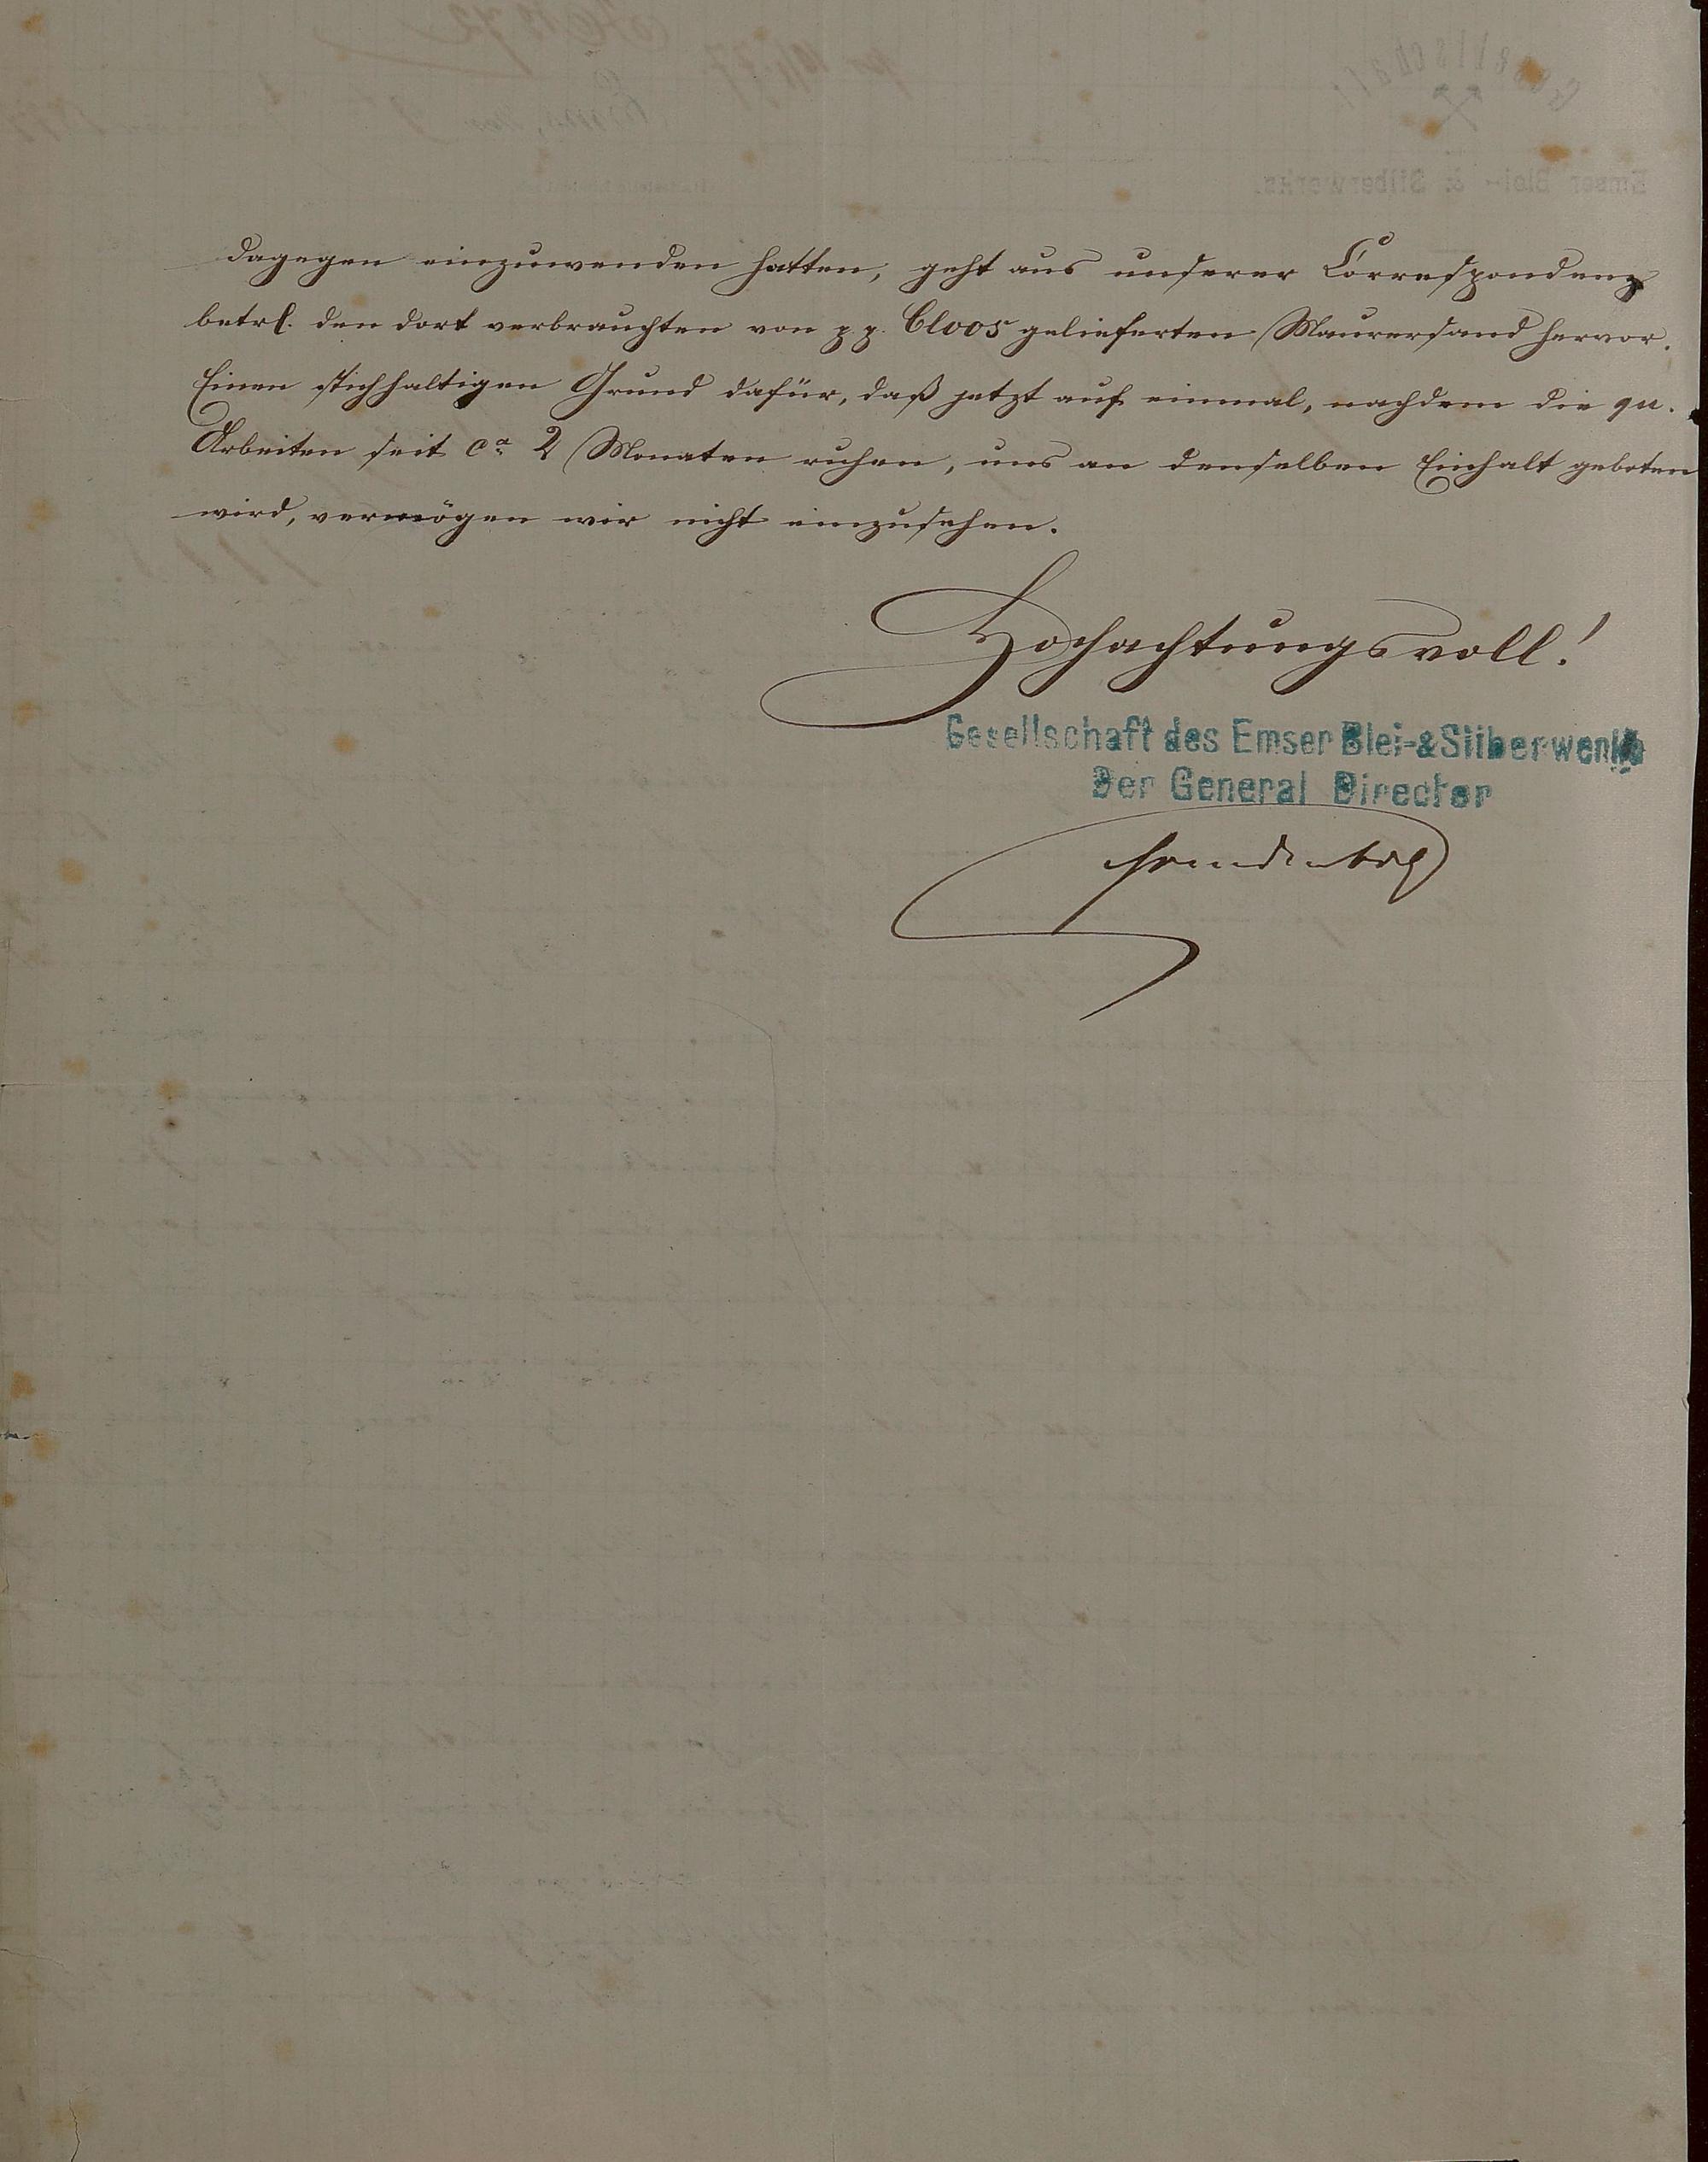 dagegen einzuwenden hatten, geht aus unserer Correspondenz
betrf. den dort verbrauchten von p.p. Cloos gelieferten Maurersand hervor.
Einen stichhaltigen Grund dafür, daß jetzt auf einmal, nachdem die qu.
Arbeiten seit ca 2 Monaten ruhen, uns an denselben Einhalt geboten
wird, vermögen wir nicht einzusehen.
Hochachtungsvoll!
Gesellschaft des Emser Blei-&Silberwerks
Der General Director